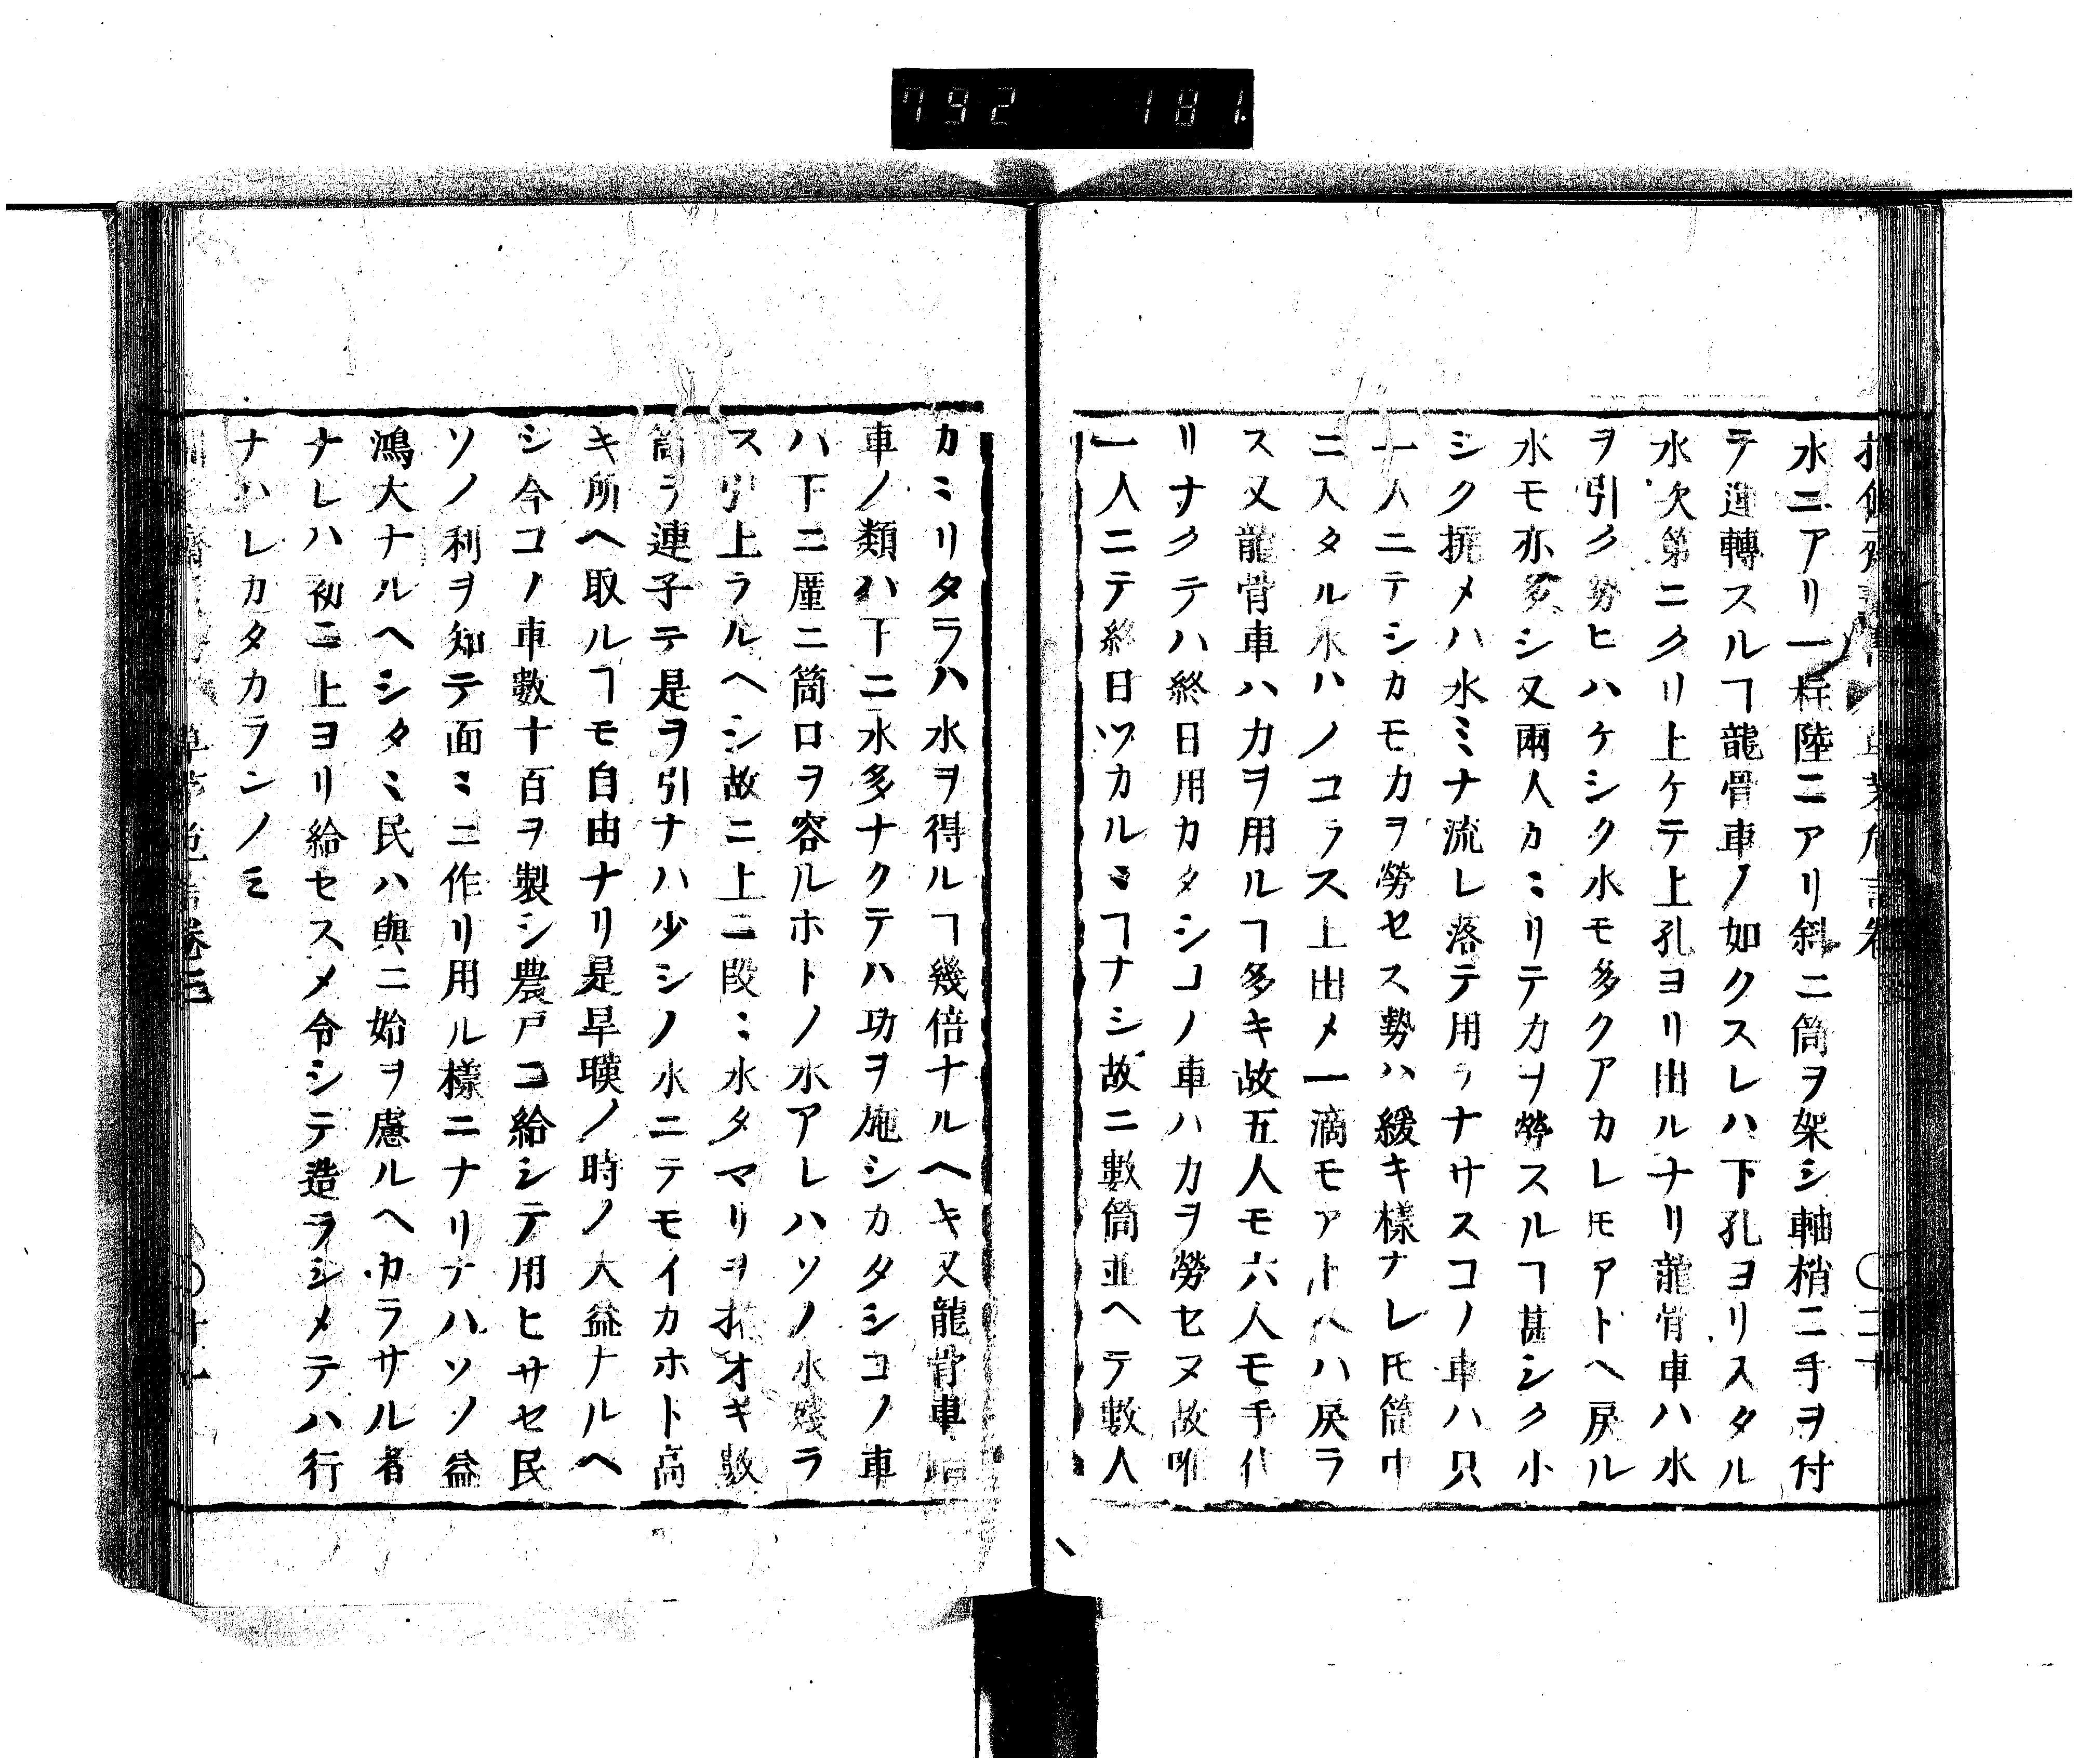 792 181
水ニアリ一梓陸ニアリ斜ニ筒ヲ架シ軸梢ニ手ヲ付
テ運轉スルヿ龍骨車ノ如クスレハ下孔ヨリスタル
水次第ニクリ上ケテ上孔ヨリ出ルナリ龍骨車ハ水
ヲ引ク勢ヒハケシク水モ多クアカレㇳモアトヘ戻ル
水モ亦多シ又兩人カミリテカヲ勞スルヿ甚シク小
シク撓メハ水ミナ流レ落テ用ヲナサスコノ車ハ只
一人ニテシカモカヲ勞セス勢ハ緩キ様ナレ𪜈筒中
ニ入タル水ハノコラス上出メ一滴モアトヘハ戻ラ
ス又龍骨車ハカヲ用ルヿ多キ故五人モ六人モ手代
リナクテハ終日用カタシコノ車ハカヲ勞セヌ故唯
一人ニテ終日ツカルミヿナシ故ニ數筒並ヘテ數人
カミリタラハ水ヲ得ルヿ幾倍ナルヘキ又龍骨車
車ノ類ハ下ニ水多ナクテハ功ヲ施シカタシコノ車
ハ下ニ厪ニ筒口ヲ容ルホトノ水アレハソノ水殘ラ
ス引上ラルヘシ故ニ上ニ段ミ水タマリヲ拵オキ數
筒ヲ連子テ是ヲ引ナハ少シノ水ニテモイカホト高
キ所ヘ取ルヿモ自由ナリ是旱暵ノ時ノ大益ナルヘ
シ今コノ車數十百ヲ製シ農戸コ給シテ用ヒサセ民
ソノ利ヲ知テ面ミニ作リ用ル様ニナリナハソノ益
鴻大ナルヘシタミ民ハ與ニ始ヲ慮ルヘカラサル者
ナレハ初ニ上ヨリ給セスメ令シテ造ヲシメテハ行
ナハレカタカランノミ